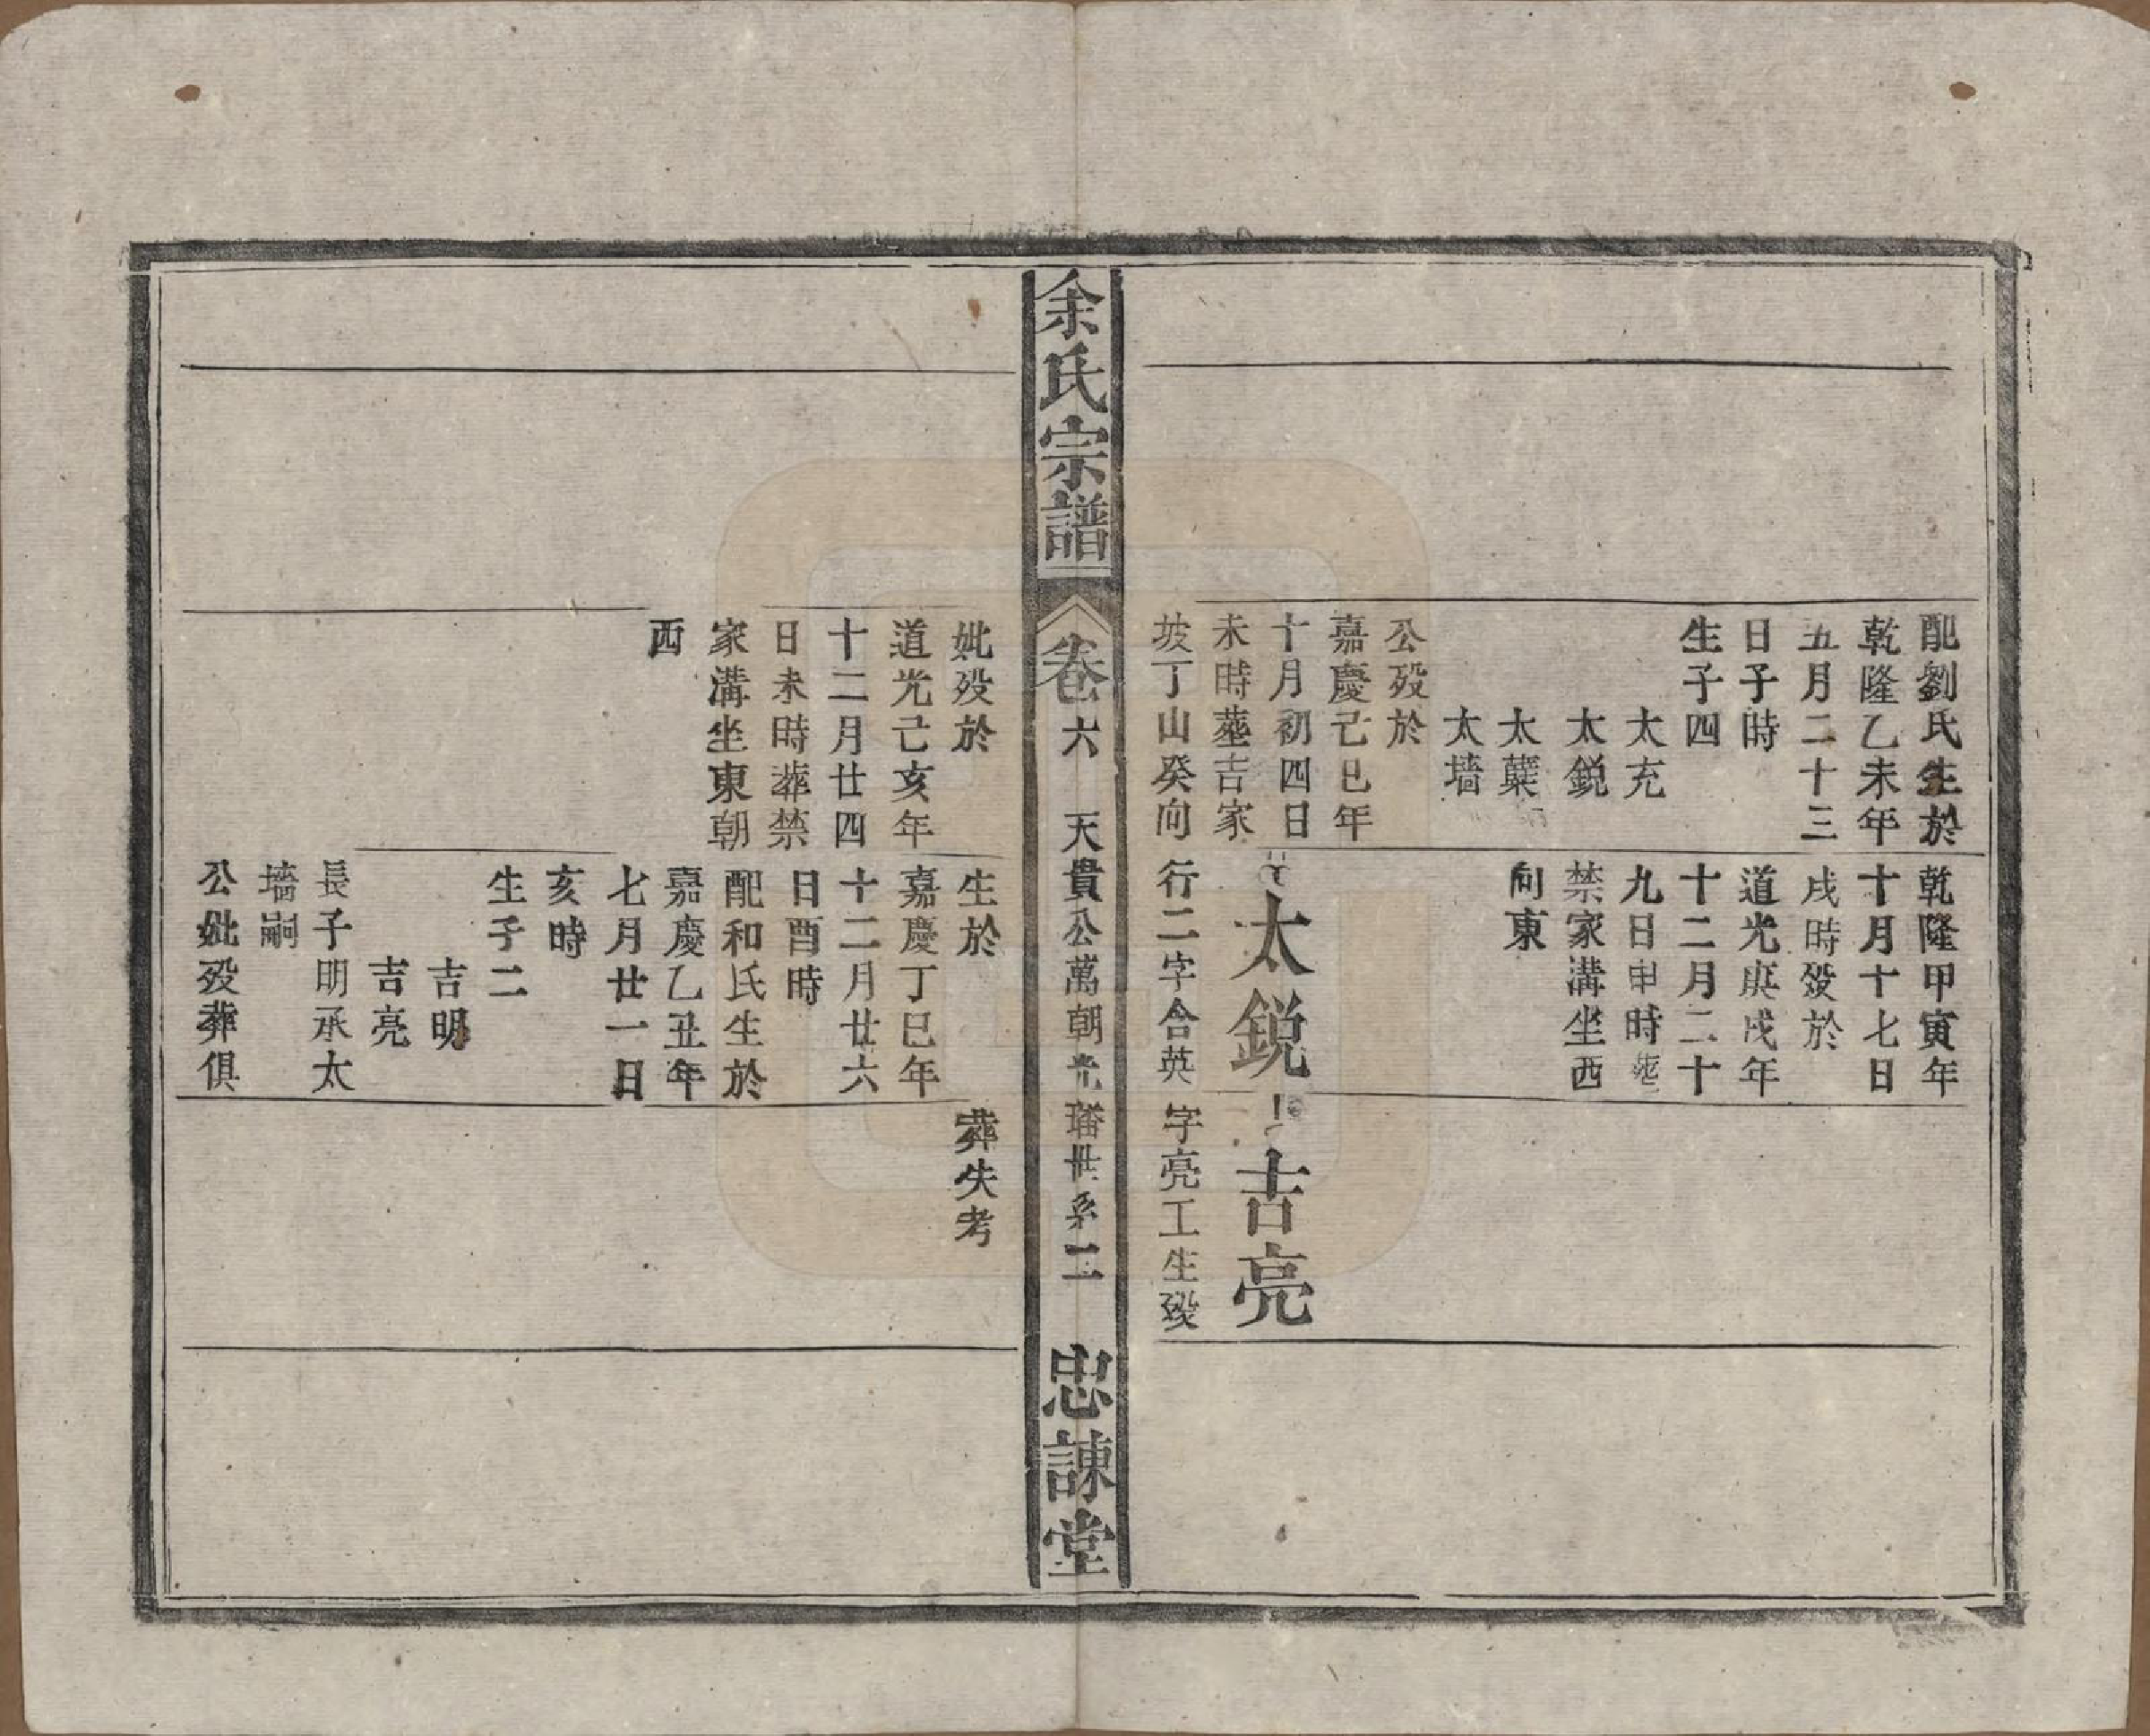 配劉氏生於
乾隆乙未年
五月二十三
日子時
生子四
太充
太鋭
太蘽
太墙
公殁於
嘉慶己巳年
十月初四日
未時塟吉家
坡丁山癸向
乾隆甲寅年
十月十七日
戌時殁於
道光庚戌年
十二月二十
九日申時塟
禁家溝坐西
向東
太鋭
行二字合英
吉亮
字亮工生殁
余氏宗譜
卷六
天貴公萬朝光璠世系二
忠諫堂
妣殁於
道光己亥年
十二月廿四
日未時葬禁
家溝坐東朝
西
生於
嘉慶丁巳年
十二月廿六
日酉時
配和氏生於
嘉慶乙丑年
七月廿一日
亥時
生子二
吉明
吉亮
長子明承太
墻嗣
公妣殁葬俱
葬失考